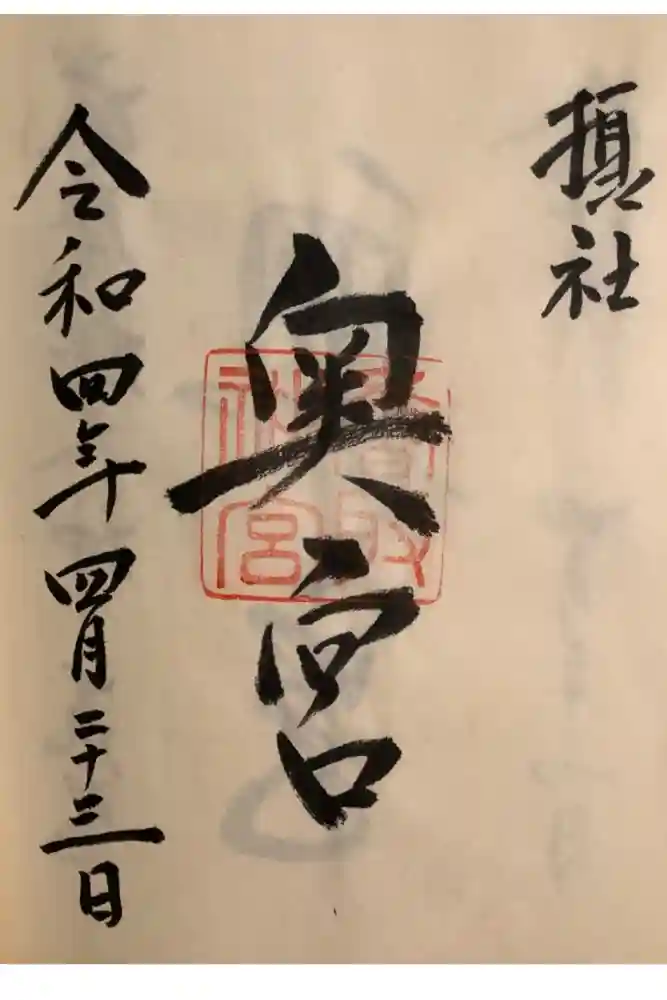 摂社
奥宮
香取
神宮
令和四年四月二十三日